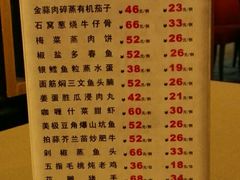 金蒜肉碎蒸有机茄子 ¥46元/例 ¥23元/例
石窝葱烧牛仔骨 ¥66元/例 ¥33元/例
梅菜肉饼 ¥52元/例 ¥26元/例
椒盐多春鱼 ¥52元/例 ¥26元/例
银鳕鱼粒蒸水蛋 ¥38元/例 ¥19元/例
面筋焖三文鱼头腩 ¥52元/例 ¥26元/例
姜蛋胜瓜浸肉丸 ¥42元/例 ¥21元/例
咖喱什菜甜虾 ¥60元/例 ¥30元/例
美极豆角爆山坑鱼 ¥52元/例 ¥26元/例
拍蒜芥兰苗炒肥牛 ¥52元/例 ¥26元/例
剁椒蒸鱼头 ¥66元/例 ¥33元/例
五指毛桃炖老鸡 ¥36元/例 ¥18元/例
¥68元 ¥34元